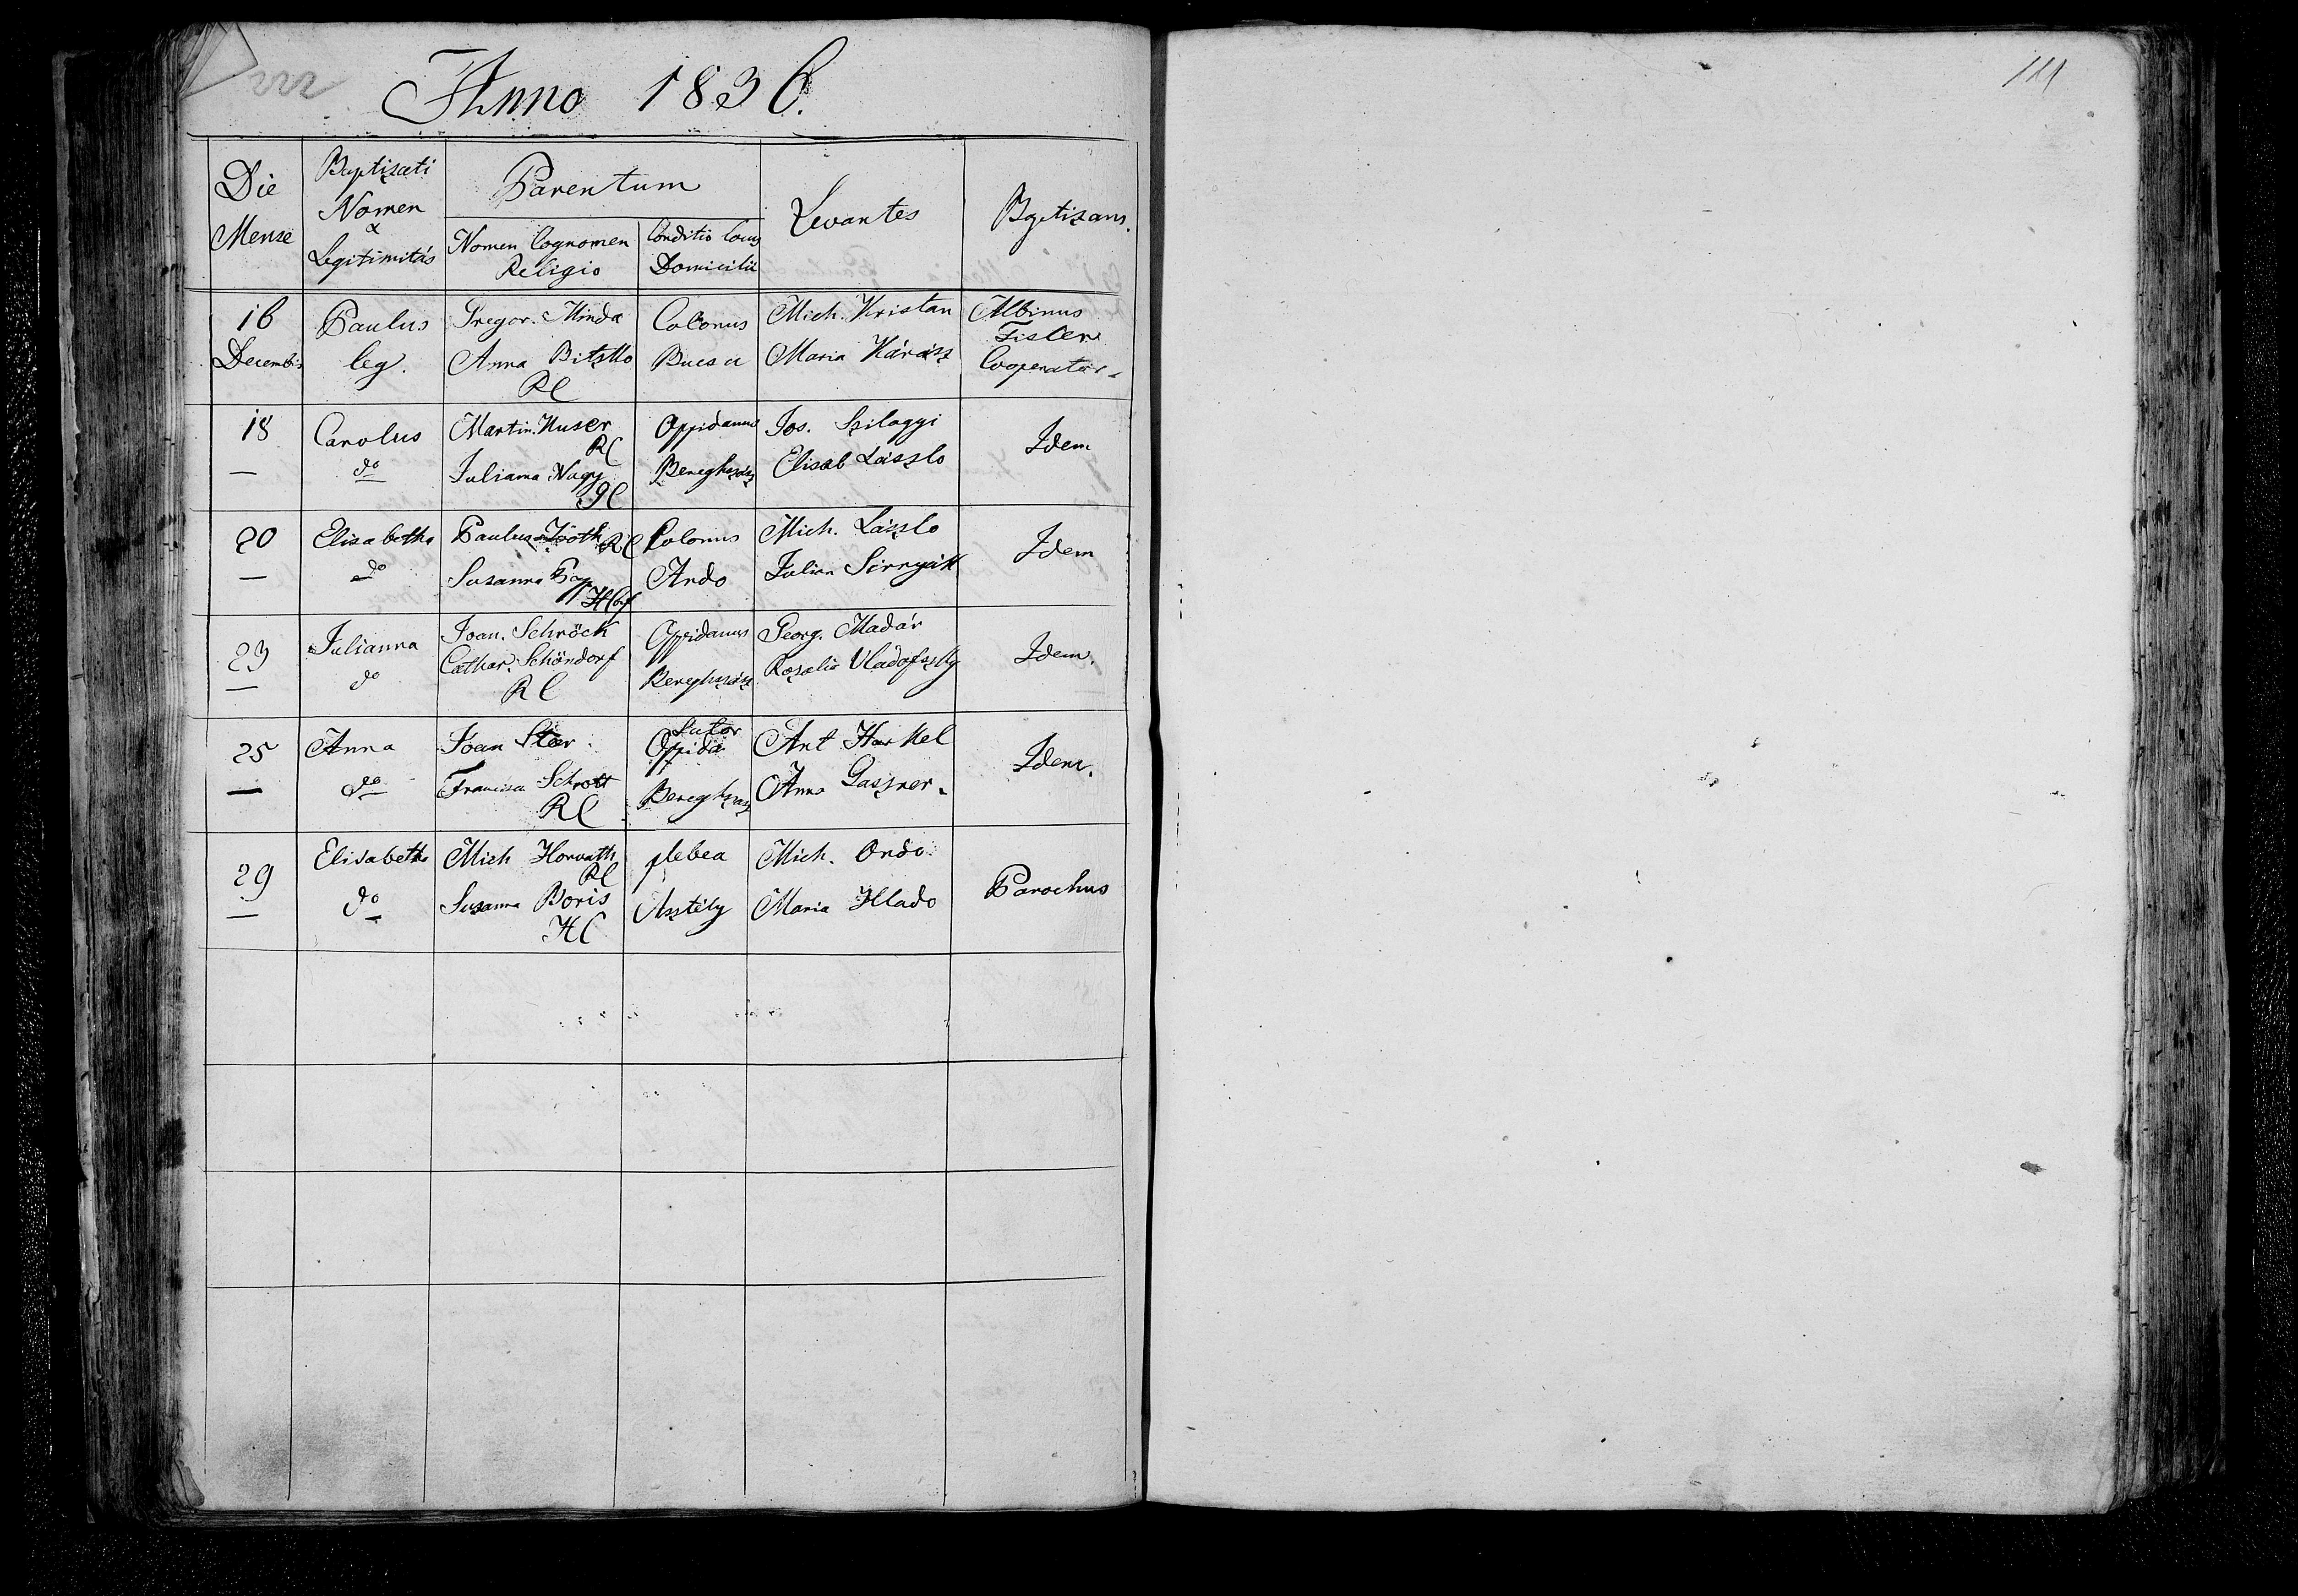 222
Anno 1836.
Die
Mense
Baptisati
Nomen
&
Legitimitás
Parentum
Nomen Cognomen
Religio
Conditio Locus
Domicilii
Levantes
Bptisans.
16
Decembris
Paulus
leg.
Gregor. Minda
Anna Bitsko
RC
Colonus
Bucsu
Mich. Kristan
Maria Kárász
Albinus
Fisler
Cooperator
18
—
Carolus
do
Martin. Kuser
RC
Juliana Nagy
GC
Oppidanus
Bereghszász
Jos. Szilagyi
Elisab László
Idem
20
—
Elisabetha
do
Paulus Tóth RC
Susanna Pap
H Conf
Colonus
Ardo
Mich. László
Julian
Idem
23
—
Julianna
do
Joan. Schröck
Cathar. Schöndorf
RC
Oppidanus
Bereghszász
Georg. Madár
Rosalia
Idem.
25
—
Anna
do
Joan Ster
Francisca Schrott
RC
Sutor
Oppida
Bereghszász
Ant Harkel
Anna Gassner.
Idem.
29
—
Elisabetha
do
Mich Horvath
RC
Susanna Boris
HC
plebea
Asztély
Mich. Ordo
Maria Hlado
Parochus
111